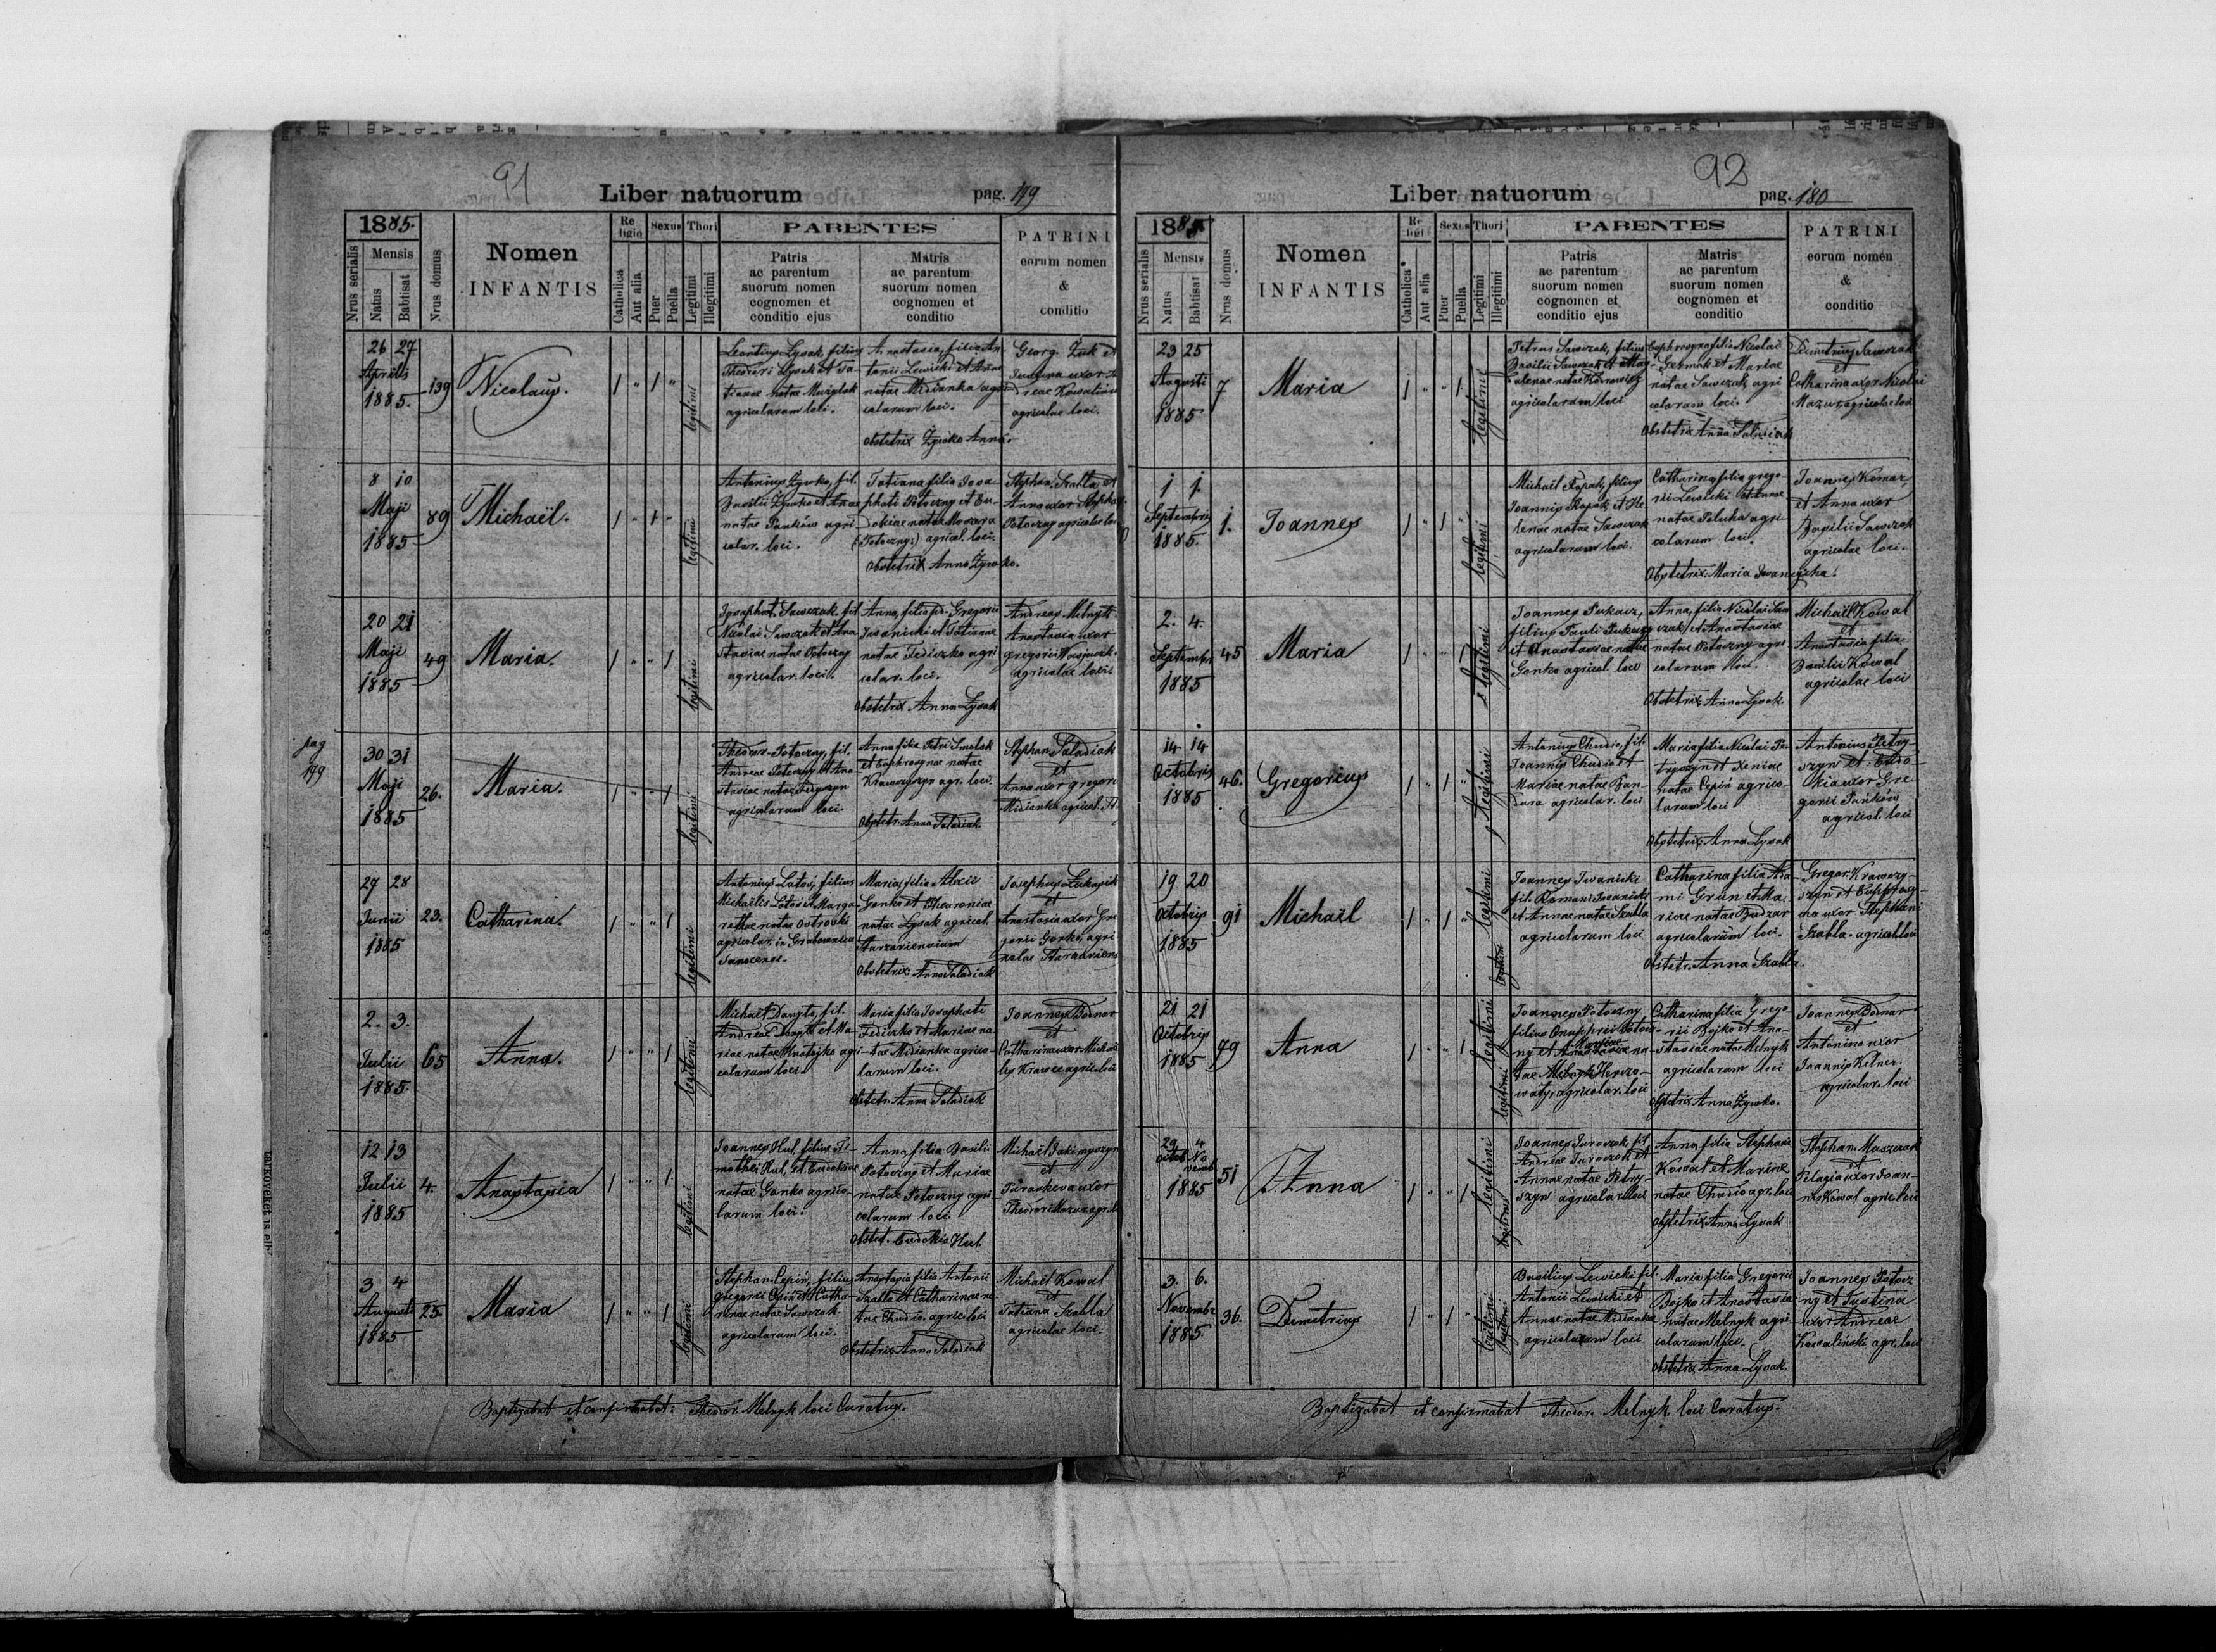 91
Liber natuorum
pag. 179
1885.
Nrus serialis
Mensis
Natus
Babtisat
Nrus domus
Nomen
INFANTIS
Religio
Catholica
Aut alia
Sexus
Puer
Puella
Thori
Legitimi
Illegitimi
PARENTES
Patris
ac parentum
suorum nomen
cognomen et
conditio ejus
Matris
ac parentum
suorum nomen
cognomen et
conditio
PATRINI
eorum nomen
&
conditio
26 27
Aprilis
1885.
139
Nicolaus.
legitimi
Leontius Lysak, filius
Theodori Lysak et Ta-
tianae natae
agricolarum loci.
Anastasia, filia An-
tonii Lewicki et Annae
natae Midianka agri
colarum loci.
Obstetrix Żywko Anna
Georg. Żuk et
uxor
agricolae loci.
8 10
Maji
1885
89
Michaël.
legitimi
Antonius Żywko, fil.
Basilii Żywko et Annae
natae Pańków agri
colar. loci.
Tatiana filia Josa-
phati Potoczny et Eu-
dokiae natae
(Potoczny) agricol. loci.
Obstetrix Anna Żywko.
Stephan. Szabla et
Anna uxor Stephani
Potoczny agricolae loci
20 21
Maji
1885
49
Maria.
legitimi
Josaphat. Sawczak fil.
Nicolai Sawczak et Ana
stasiae natae Potoczny
agricolar. loci.
Anna, filia Gregorii
Iwanicki et Tatianae
natae Fediczko agri
colar. loci.
Obstetrix Anna Lysak
Andreas Melnyk
Anastasia uxor
Gregorii
agricolae loci.
pag
179
30 31
Maji
1885
26.
Maria.
legitimi
Theodor. Potoczny, fil.
Andreae Potoczny et Ana-
stasiae natae
agricolarum loci.
Anna filia Petri Smolak
et Euphrosynae natae
Krawczyszyn agr. loci.
Obstetr. Anna Paladiak.
Stephan Paladiak
et
Anna uxor Gregorii
Midianka agricol.
27 28
Junii
1885
23.
Catharina.
legitimi
Antonius Latoś, filius
Michaëlis Latoś et Marga-
rethae natae Ostrocki
agricolar. in Grabownica
Sanocensi.
Maria, filia Alexii
Gonko et Theoroniae
natae Lysak agricol.
Starzaviensium
Obstetrix Anna Paladiak
Josephus
et
Anastasia uxor Gre
gorii Gonko, agri
colae Starzaviens
2. 3.
Julii
1885.
65
Anna.
legitimi
Michaël fil.
Andreae et Ma-
riae natae Hnatyko agri-
colarum loci.
Maria filia Josaphati
Fediczko et Mariae na-
tae Midianka agrico-
larum loci.
Obstetr. Anna Paladiak
Joannes Bodnar
et
Catharina uxor Michaë
lis Krawec agric. loci
12 13
Julii
1885
4.
Anastasia
legitimi
Joannes Hul, filius Ti-
mothei Hul, et Eudokiae
natae Gonko agrico-
larum loci.
Anna, filia Basilii
Potoczny et Mariae
natae Potoczny agri
colarum loci.
Obstet. Eudokia Hul.
Michaël
et
Paraskeva uxor
Theodori Mazur agr. loci
3 4
Augusti
1885
25.
Maria
legitimi
Stephan. Cepiń, filius
Gregorii Cepiń et Catha-
rinae natae Sawczak
agricolarum loci.
Anastasia filia Antonii
Szabla et Catharinae na-
tae Chudio agric. loci
Obstetrix Anna Paladiak
Michaël Kowal
et
Tatiana Szabla
agricolae loci.
Baptizabat et confirmabat: Theodor. Melnyk loci Curatus.
92
Liber natuorum
pag. 180
1885
Nrus serialis
Mensis
Natus
Babtisat
Nrus domus
Nomen
INFANTIS
Religi
Catholica
Aut alia
Sexus
Puer
Puella
Thori
Legitimi
Illegitimi
PARENTES
Patris
ac parentum
suorum nomen
cognomen et
conditio ejus
Matris
ac parentum
suorum nomen
cognomen et
conditio
PATRINI
eorum nomen
&
conditio
23 25
Augusti
1885
7
Maria
legitimi
Petrus Sawczak, filius
Basilii Sawczak et Mag-
dalenae natae
agricolarum loci
Euphrosyna filia Nicolai
et Mariae
natae Sawczak agri
colarum loci.
Obstetrix Anna Paladiak
Dimitrius Sawczak
et
Catharina uxor Nicolai
Mazur agricolae loci
1 1.
Septembris
1885.
1.
Joannes
legitimi
Michaël Kopak, filius
Joannis Kopak et He-
lenae natae Sawczak
agricolarum loci.
Catharina, filia Grego-
rii Lewicki et Annae
natae agri-
colarum loci.
Obstetrix Maria
Joannes Komar
et Anna uxor
Basilii Sawczak
agricolae loci.
2. 4.
Septembr.
1885
45
Maria
legitimi
Joannes Pukacz,
filius Pauli Pukacz
et Anastasiae natae
Gonko agricol. loci
Anna, filia Nicolai Saw
czak, et Anastasiae
natae Potoczny agri
colarum loci.
Obstetrix Anna Lysak.
Michaël Kowal
et
Anastasia filia
Basilii Kowal
agricolae loci
14 14
Octobris
1885
46.
Gregorius
legitimi
Antonius Chudio, fil.
Joannis Chudio et
Mariae natae Ban-
dura agricolar. loci
Maria filia Nicolai Pe-
tryszyn et Xeniae
natae Cepiń agrico
larum loci
Obstetrix Anna Lysak
Antonius Petry-
szyn et Eudo-
kia uxor Gre
gorii Pańków
agricol. loci
19 20
Octobris
1885
91
Michaël
legitimi
Joannes Iwanicki
fil. Romani Iwanicki
et Annae natae Szabla
agricolarum loci
Catharina filia Ada
mi Grün et Ma-
riae natae Budzar
agricolarum loci.
Obstetr. Anna Szabla.
Gregor. Krawczy-
szyn et Euphrosy-
na uxor Stephani
Szabla agricol. loci
21 21
Octobris
1885
79
Anna
legitimi
Joannes Potoczny
filius Onuphrii Potocz-
ny et Mariae na-
tae
agricolar. loci
Catharina filia Grego-
rii Bojko et Ana-
stasiae natae Melnyk
agricolarum loci
Obstetrix Anna Żywko.
Joannes Bodnar
et
Antonina uxor
Joannis Kelner
agricolar. loci
29 4
Octob. No
vemb
1885
51
Anna
legitimi
Joannes Juroczok, fil.
Andreae Juroczok et
Annae natae Petry-
szyn agricolar. loci
Anna, filia Stephani
Kowal et Mariae
natae Chudio agr. loci
Obstetrix Anna Lysak
Stephan.
et
Pelagia uxor Joan-
nis Kowal agric. loci
3. 6.
Novembr
1885.
36.
Demetrius
legitimi
Basilius Lewicki fil.
Antonii Lewicki et
Annae natae Midianka
agricolarum loci
Maria filia Gregorii
Bojko et Anastasiae
natae Melnyk agri
colarum loci.
Obstetrix Anna Lysak.
Joannes Potocz
ny et Justina
uxor Andreae
Kowalinski agr. loci
Baptizabat et confirmabat Theodor. Melnyk loci Curatus.